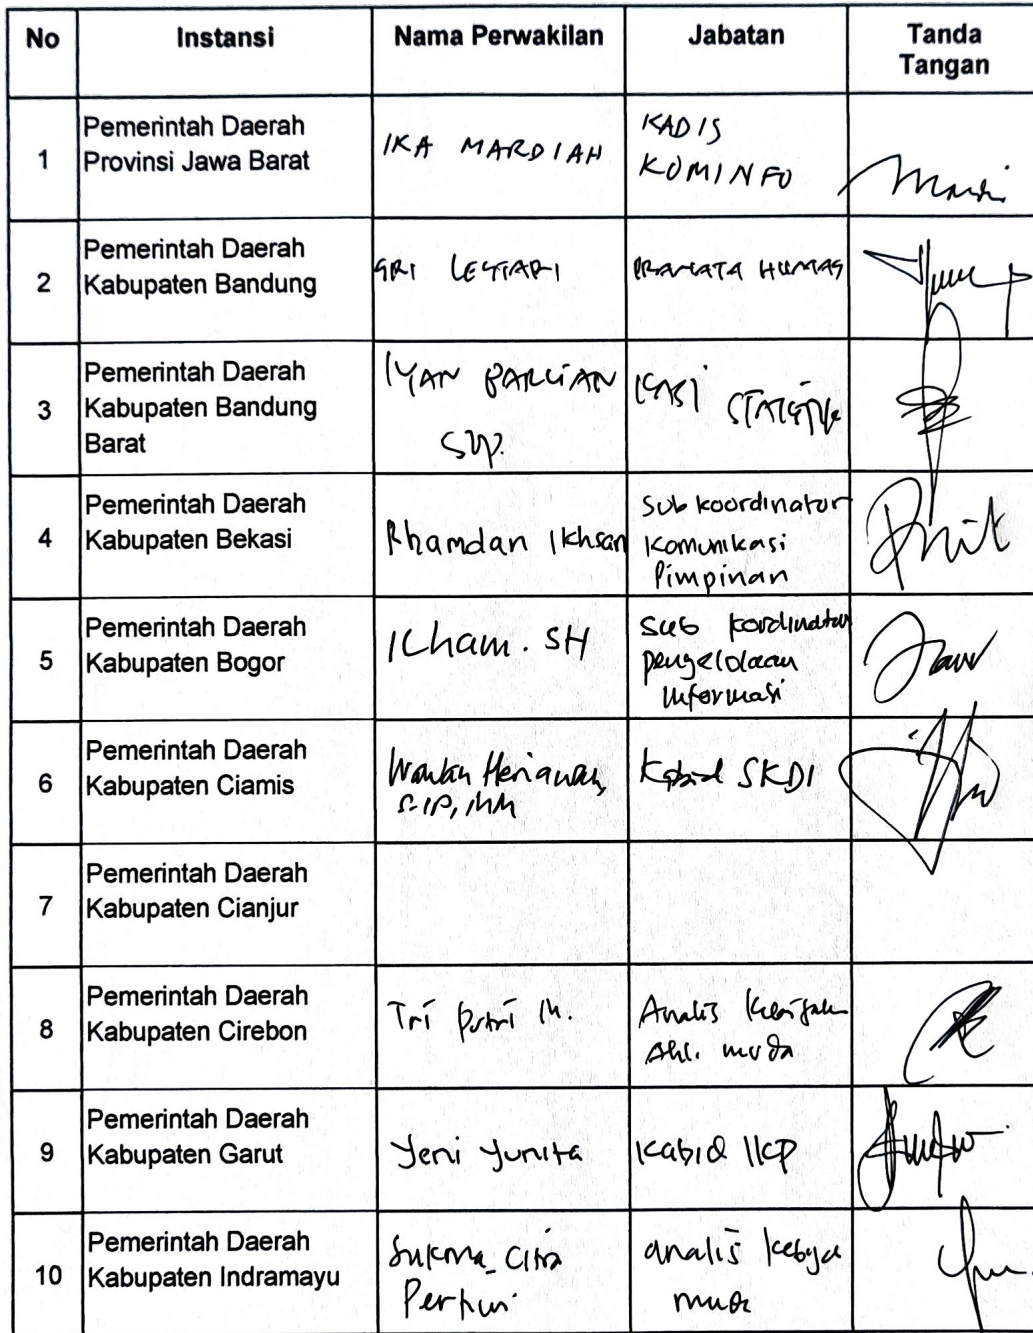 No Instansi Nama Perwakilan Jabatan Tanda
Tangan
1 Pemerintah Daerah
Provinsi Jawa Barat
IKA MARDIAH
KADIS
KOMINFO
2 Pemerintah Daerah
Kabupaten Bandung
SRI LESTARI
PRANATA HUMAS
3 Pemerintah Daerah
Kabupaten Bandung
Barat
IYAN
KASI
4 Pemerintah Daerah
Kabupaten Bekasi
Rhamdan Ikhsan
Sub koordinator
Komunikasi
Pimpinan
5 Pemerintah Daerah
Kabupaten Bogor
Ilham. SH
Sub koordinator
pengelolaan
informasi
6 Pemerintah Daerah
Kabupaten Ciamis
S.IP, MM
Kabid SKDI
7 Pemerintah Daerah
Kabupaten Cianjur
8 Pemerintah Daerah
Kabupaten Cirebon
Tri Putri M.
Analis
Ahl. muda
9 Pemerintah Daerah
Kabupaten Garut
Yeni Yunita
Kabid IKP
10 Pemerintah Daerah
Kabupaten Indramayu
Sukma Citra
analis
muda